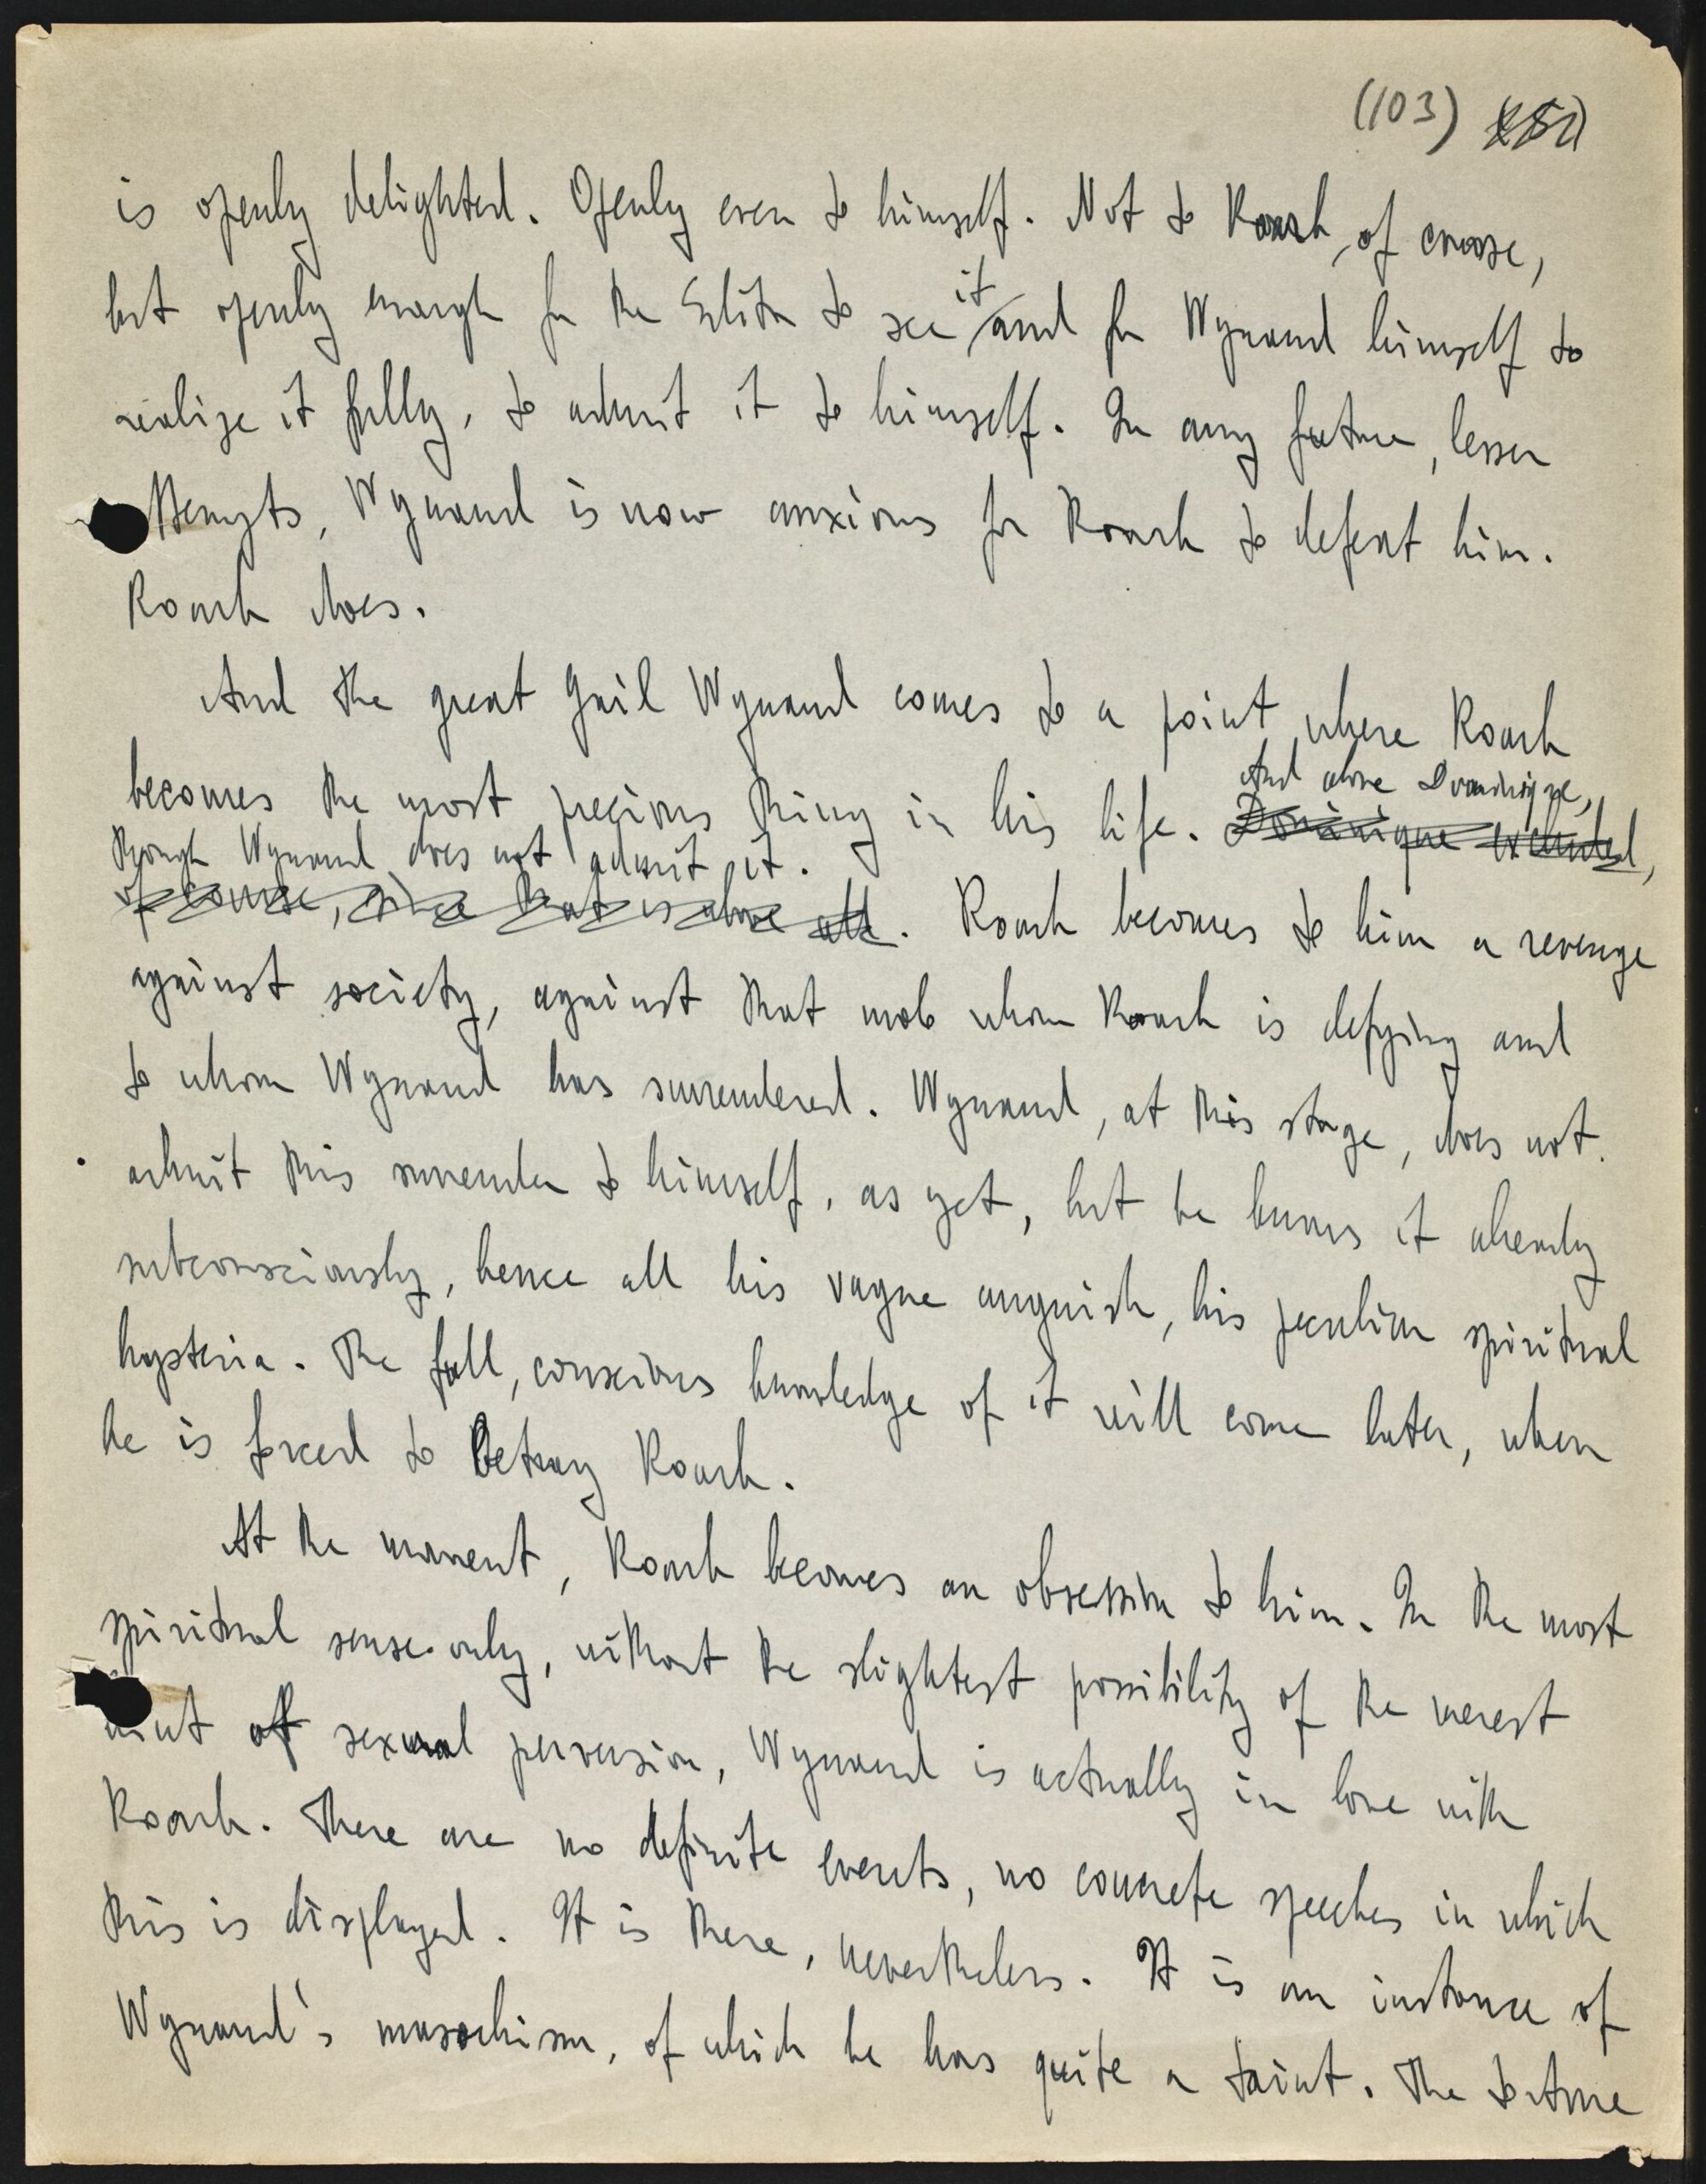 (103)
is openly delighted. Openly even to himself. Not to Roark, of course,
but openly enough for the Editor to see it and for Wynand himself to
realize it fully, to admit it to himself. In any future, lesser
attempts, Wynand is now anxious for Roark to defeat him.
Roark does.
And the great Gail Wynand comes to a point where Roark
becomes the most precious thing in his life. And above Dominique,
Dominique included,
though Wynand does not admit it.
of course, since that is above all. Roark becomes to him a revenge
against society, against that mob whom Roark is defying and
to whom Wynand has surrendered. Wynand, at this stage, does not
admit this surrender to himself, as yet, but he knows it already
subconsciously, hence all his vague anguish, his peculiar spiritual
hysteria. The full, conscious knowledge of it will come later, when
he is forced to betray Roark.
At the moment, Roark becomes an obsession to him. In the most
spiritual sense only, without the slightest possibility of the merest
hint at sexual perversion, Wynand is actually in love with
Roark. There are no definite events, no concrete speeches in which
this is displayed. It is there, nevertheless. It is an instance of
Wynand's masochism, of which he has quite a taint. The torture